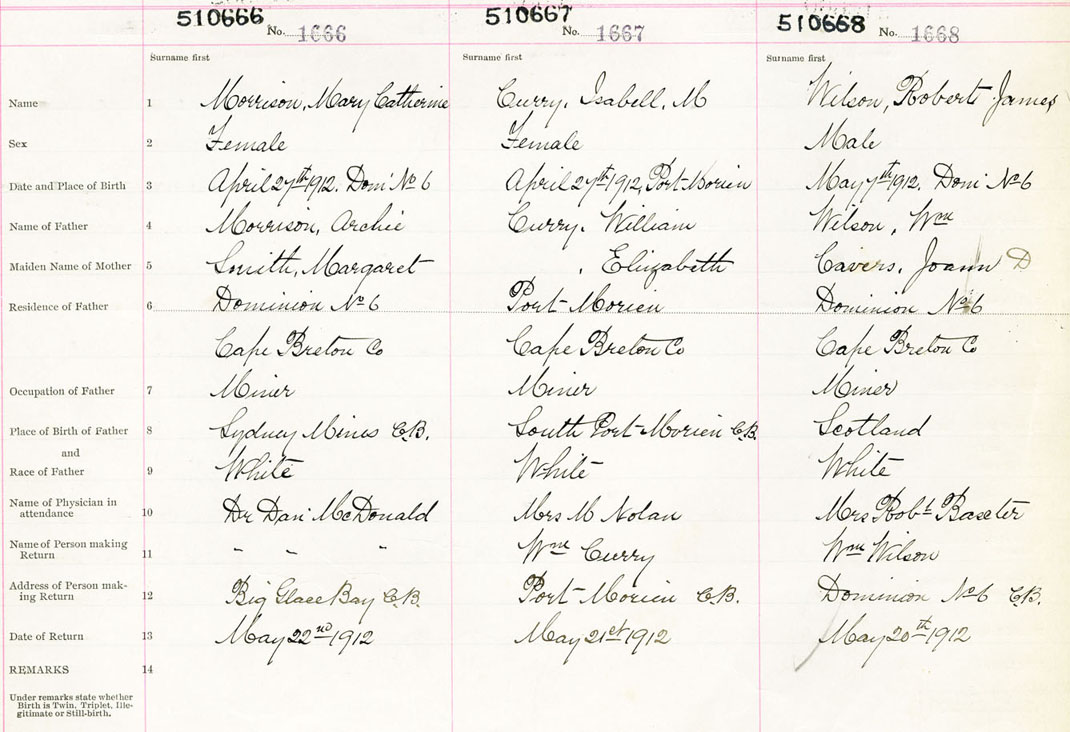 510666 510667 510668
No. 1666 No. 1667 No. 1668
Surname first Surname first Surname first
Name 1 Morrison, Mary Catherine Curry, Isabell, M Wilson, Robert James
Sex 2 Female Female Male
Date and Place of Birth 3 April 27th 1912. Dom' No 6 April 27th 1912, Port-Morien May 7th 1912. Dom' No 6
Name of Father 4 Morrison, Archie Curry, William Wilson, Wm
Maiden Name of Mother 5 Smith, Margaret , Elizabeth Cavers, Joann D
Residence of Father 6 Dominion No 6 Port-Morien Dominion No 6
Cape Breton Co Cape Breton Co Cape Breton Co
Occupation of Father 7 Miner Miner Miner
Place of Birth of Father 8 Sydney Mines C.B. South Port-Morien C.B. Scotland
and
Race of Father 9 White White White
Name of Physician in
attendance 10 Dr Dan McDonald Mrs M Nolan Mrs Robt Baxter
Name of Person making
Return 11 " " " Wm Curry Wm Wilson
Address of Person mak-
ing Return 12 Big Glace Bay C.B. Port-Morien C.B. Dominion No 6 C.B.
Date of Return 13 May 22nd 1912 May 21st 1912 May 20th 1912
REMARKS 14
Under remarks state whether
Birth is Twin, Triplet, Ille-
gitimate or Still-birth.